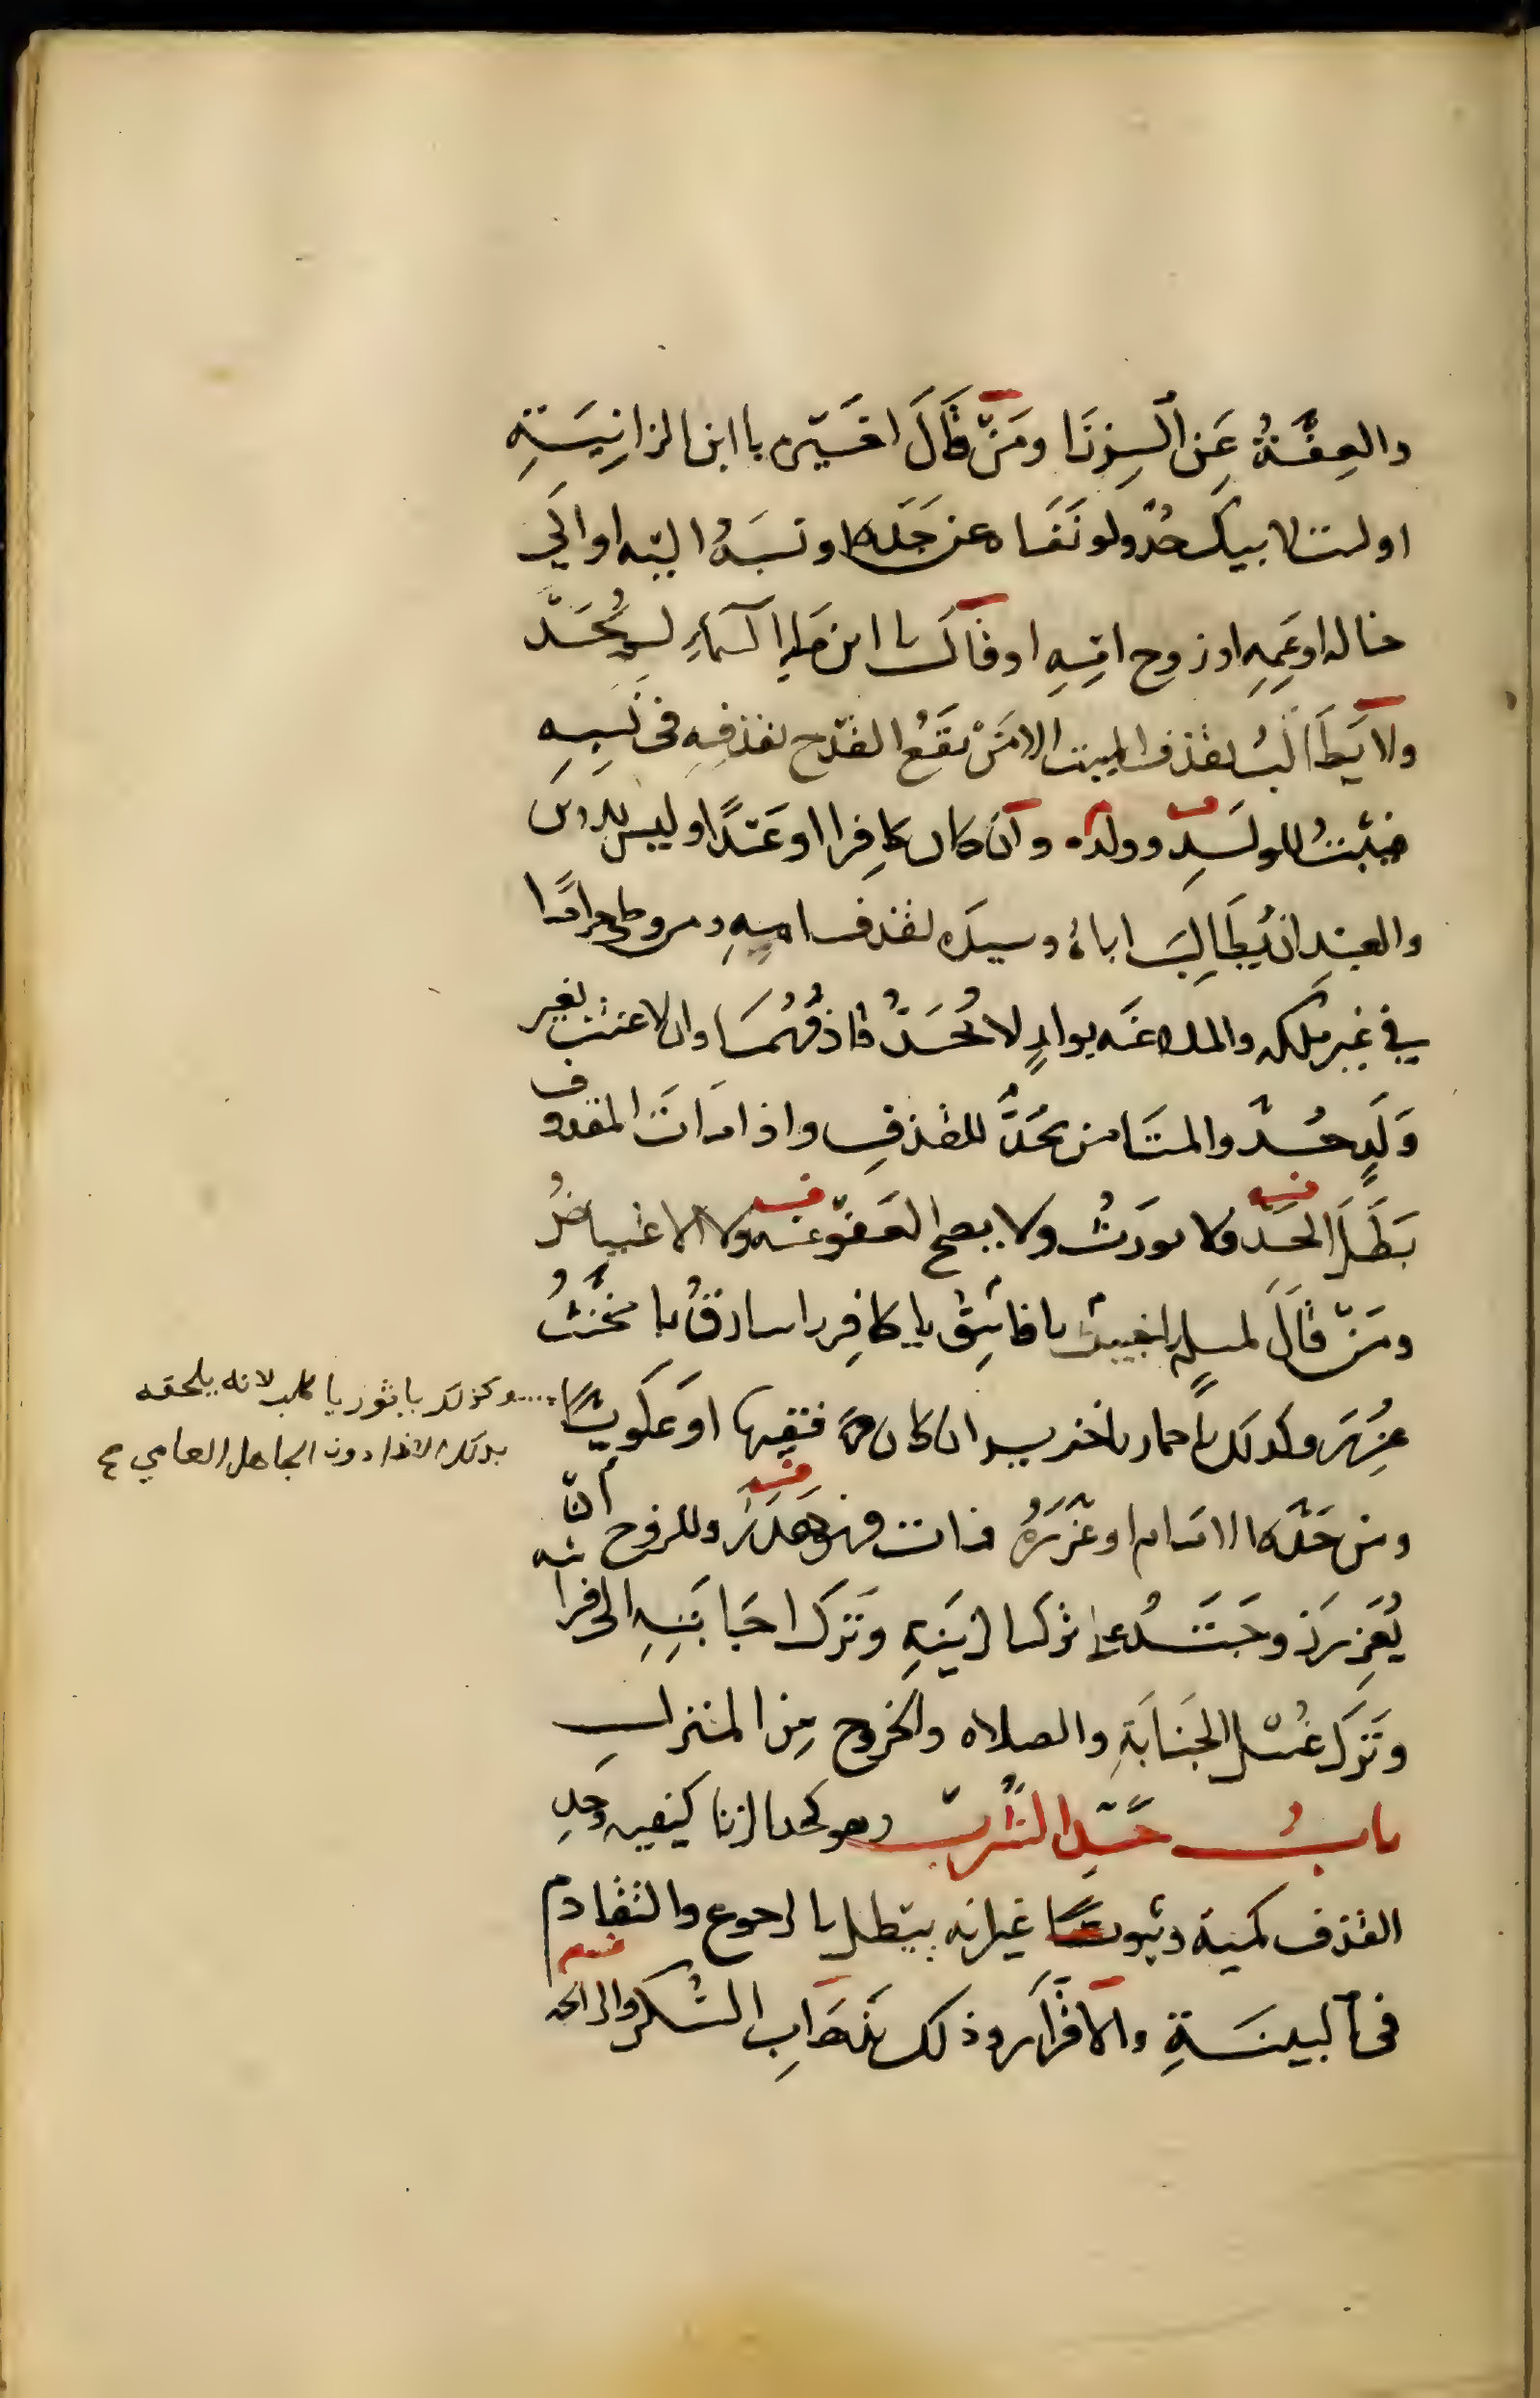 والعِفَّةُ عَنِ الزِنَا ومَنْ قَالَ لغَيْرِه يا ابن الزانِيَةِ
او لست لابيك حُدَّ ولو نَفَاه عن جَدِّه او نسَبَهُ اليه او الَى
خاله او عَمِّهِ او زوج امِّهِ او قال يا ابن مَاءِ السَّمَاءِ لم يُحَدّ
ولا يُطَالَبُ بقذف الميت الا مَنْ يقَعُ القَدْح بقذفِهِ في نَسَبِهِ
فيثبتُ للولَدِ وولده وان كان كافِرا او عَبْدًا وليس للولد
والعبدِ ان يُطَالِبَ اباهُ وسيدَه بقذف امِهِ ومن وطي حرامًا
في غير مِلكه والملاعَنَه بولدٍ لا يُحَدُّ قاذفُهُمَا وان لاعنت بغير
وَلَدٍ حُدَّ والمستَامن يُحَدُّ للقذفِ واذا مَاتَ المقذوف
بَطَلَ الحَدّ ولا يورَثُ ولا يصح العَفوّ عنه ولا الاعتياضُ
ومَنْ قَالَ لمسلمٍ يا خبيث يا فاسِق يا كافِر يا سارقُ يا مخَنَّثُ
عُزِّرَ وكذلك يا حمار يا خنزير ان كان فقيها او عَلَويًّا
ومن حَدَّه الامام او عَزَّرَهُ فمات فهو هَدَرٌ وللزوج أن
يُعَزِّرَ زوجَتَهُ على ترك الزينَةِ وتَرك اجَابَتِهِ الى فراشه
وتَرَك غُسْل الجَنَابَةِ والصلاه والخروج مِن المنزل
بابُ حَدِّ الشُّرب وهو كحد الزنا كيفيه وحدِ
القذف كمية وثبوتًا غير انه يبطل بالرجوع والتقادم
في البينَةِ والاقرَار وذلك بذهَابِ السُّكر والرائحه
وكذلك يا ثور يا كلب لانه يلحقه
بذلك الاذا دون الجاهل العامي